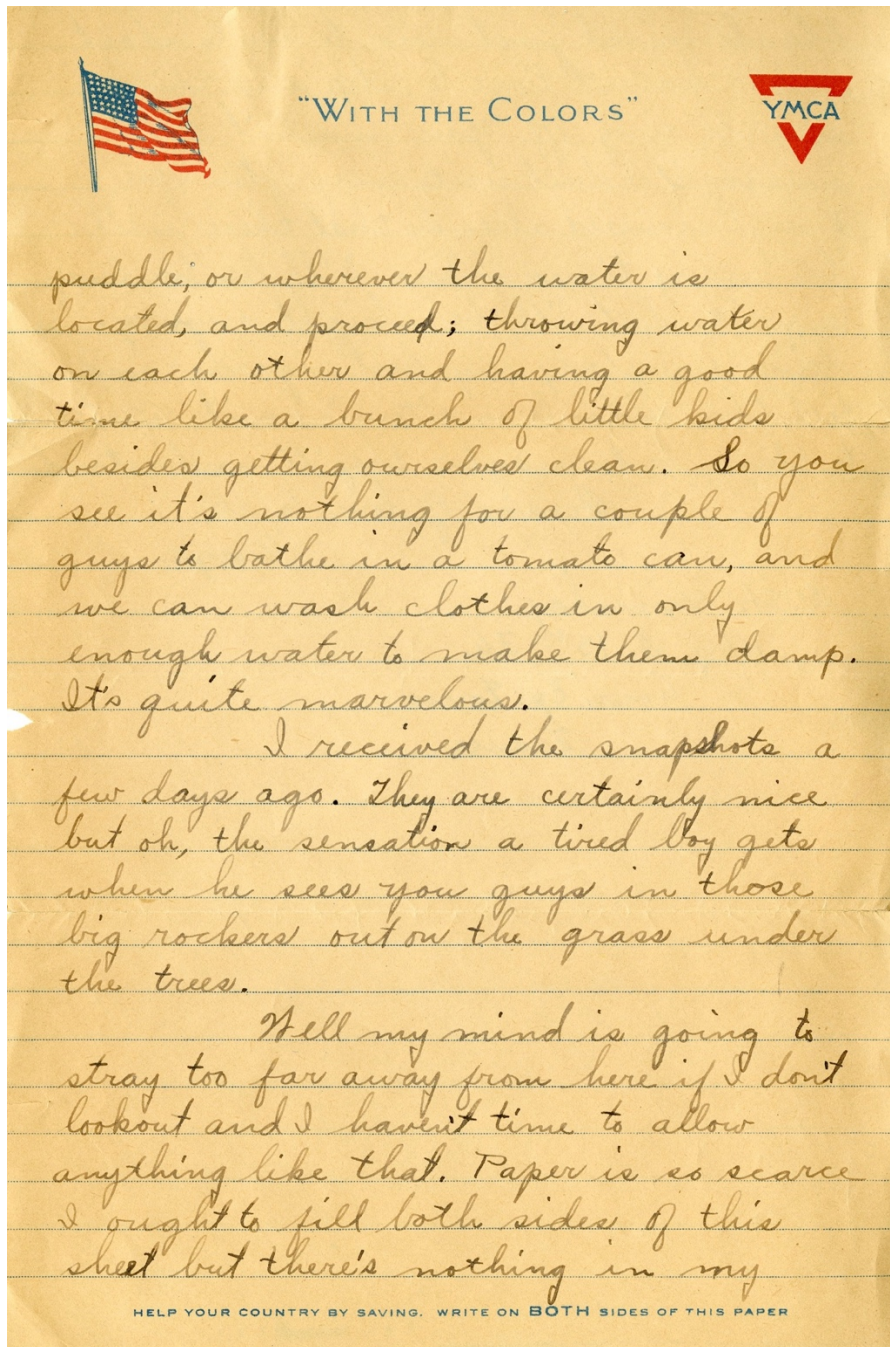 "WITH THE COLORS"
YMCA
puddle, or wherever the water is
located, and proceed; throwing water
on each other and having a good
time like a bunch of little kids
besides getting ourselves clean. So you
see it's nothing for a couple of
guys to bathe in a tomato can, and
we can wash clothes in only
enough water to make them damp.
It's quite marvelous.
I received the snapshots a
few days ago. They are certainly nice
but oh, the sensation a tired boy gets
when he sees you guys in those
big rockers out on the grass under
the trees.
Well my mind is going to
stray too far away from here if I don't
lookout and I haven't time to allow
anything like that. Paper is so scarce
I ought to fill both sides of this
sheet but there's nothing in my
HELP YOUR COUNTRY BY SAVING. WRITE ON BOTH SIDES OF THIS PAPER